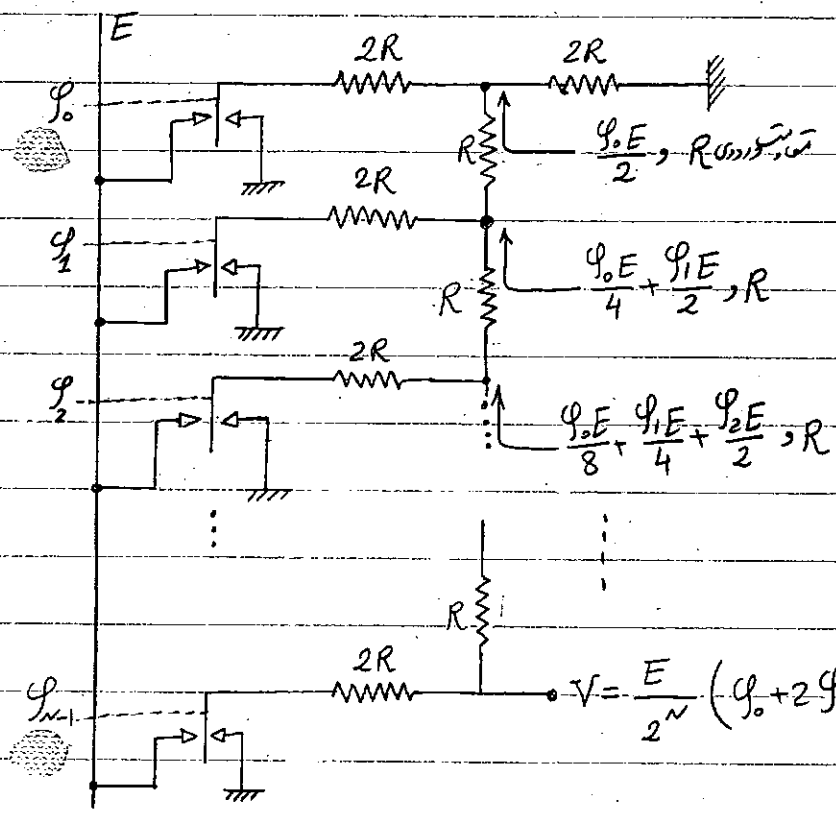 E
2R 2R
φ₀
R φ₀E/2 , R
2R
φ₁
φ₀E/4 + φ₁E/2 , R
R
2R
φ₂
φ₀E/8 + φ₁E/4 + φ₂E/2 , R
R
2R
φN-1
V = E/2^N (φ₀ + 2φ